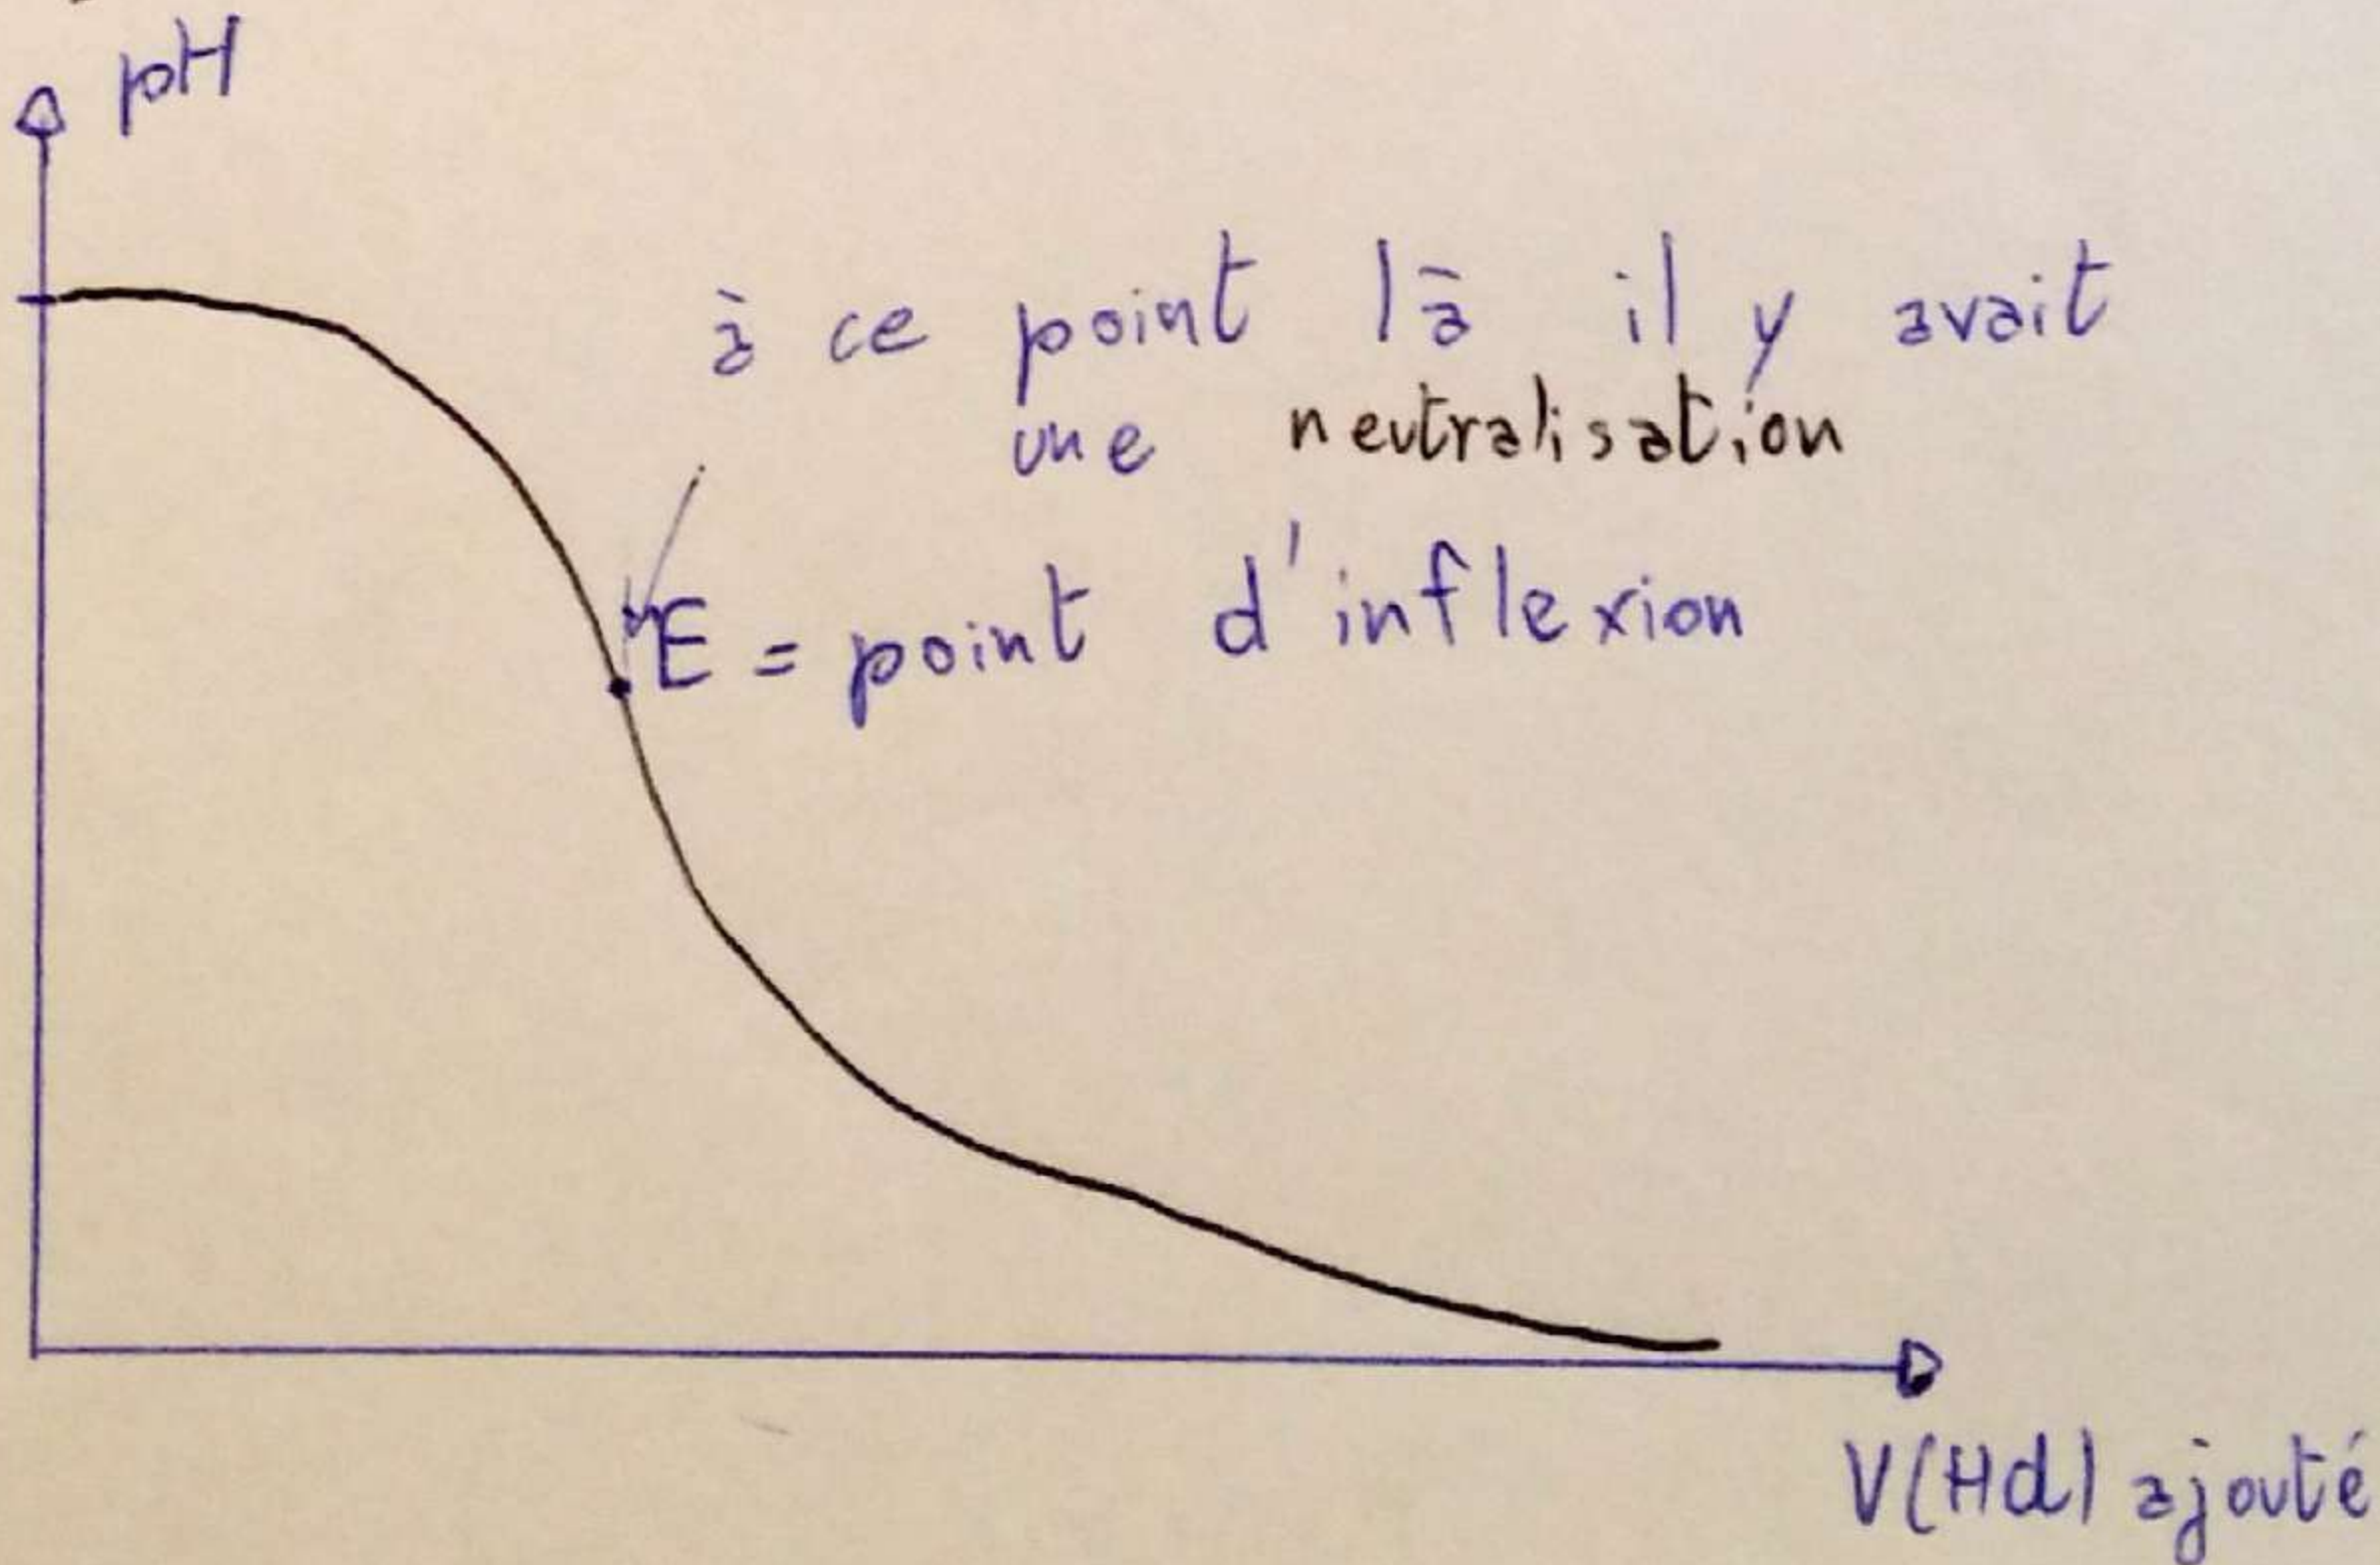 pH
à ce point là il y avait
une neutralisation
E = point d'inflexion
V(HCl) ajouté